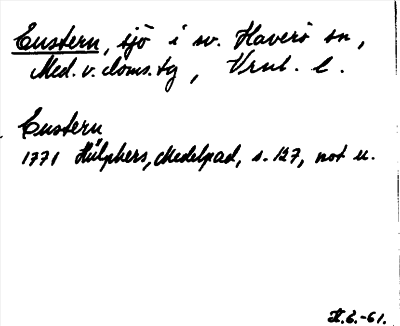 Eustern, sjö i sv. Haverö sn,
Med. v. doms.tg, Vrnl. l.
Eustern
1771 Hülphers, Medelpad, s. 127, not u.
H.E.-61.